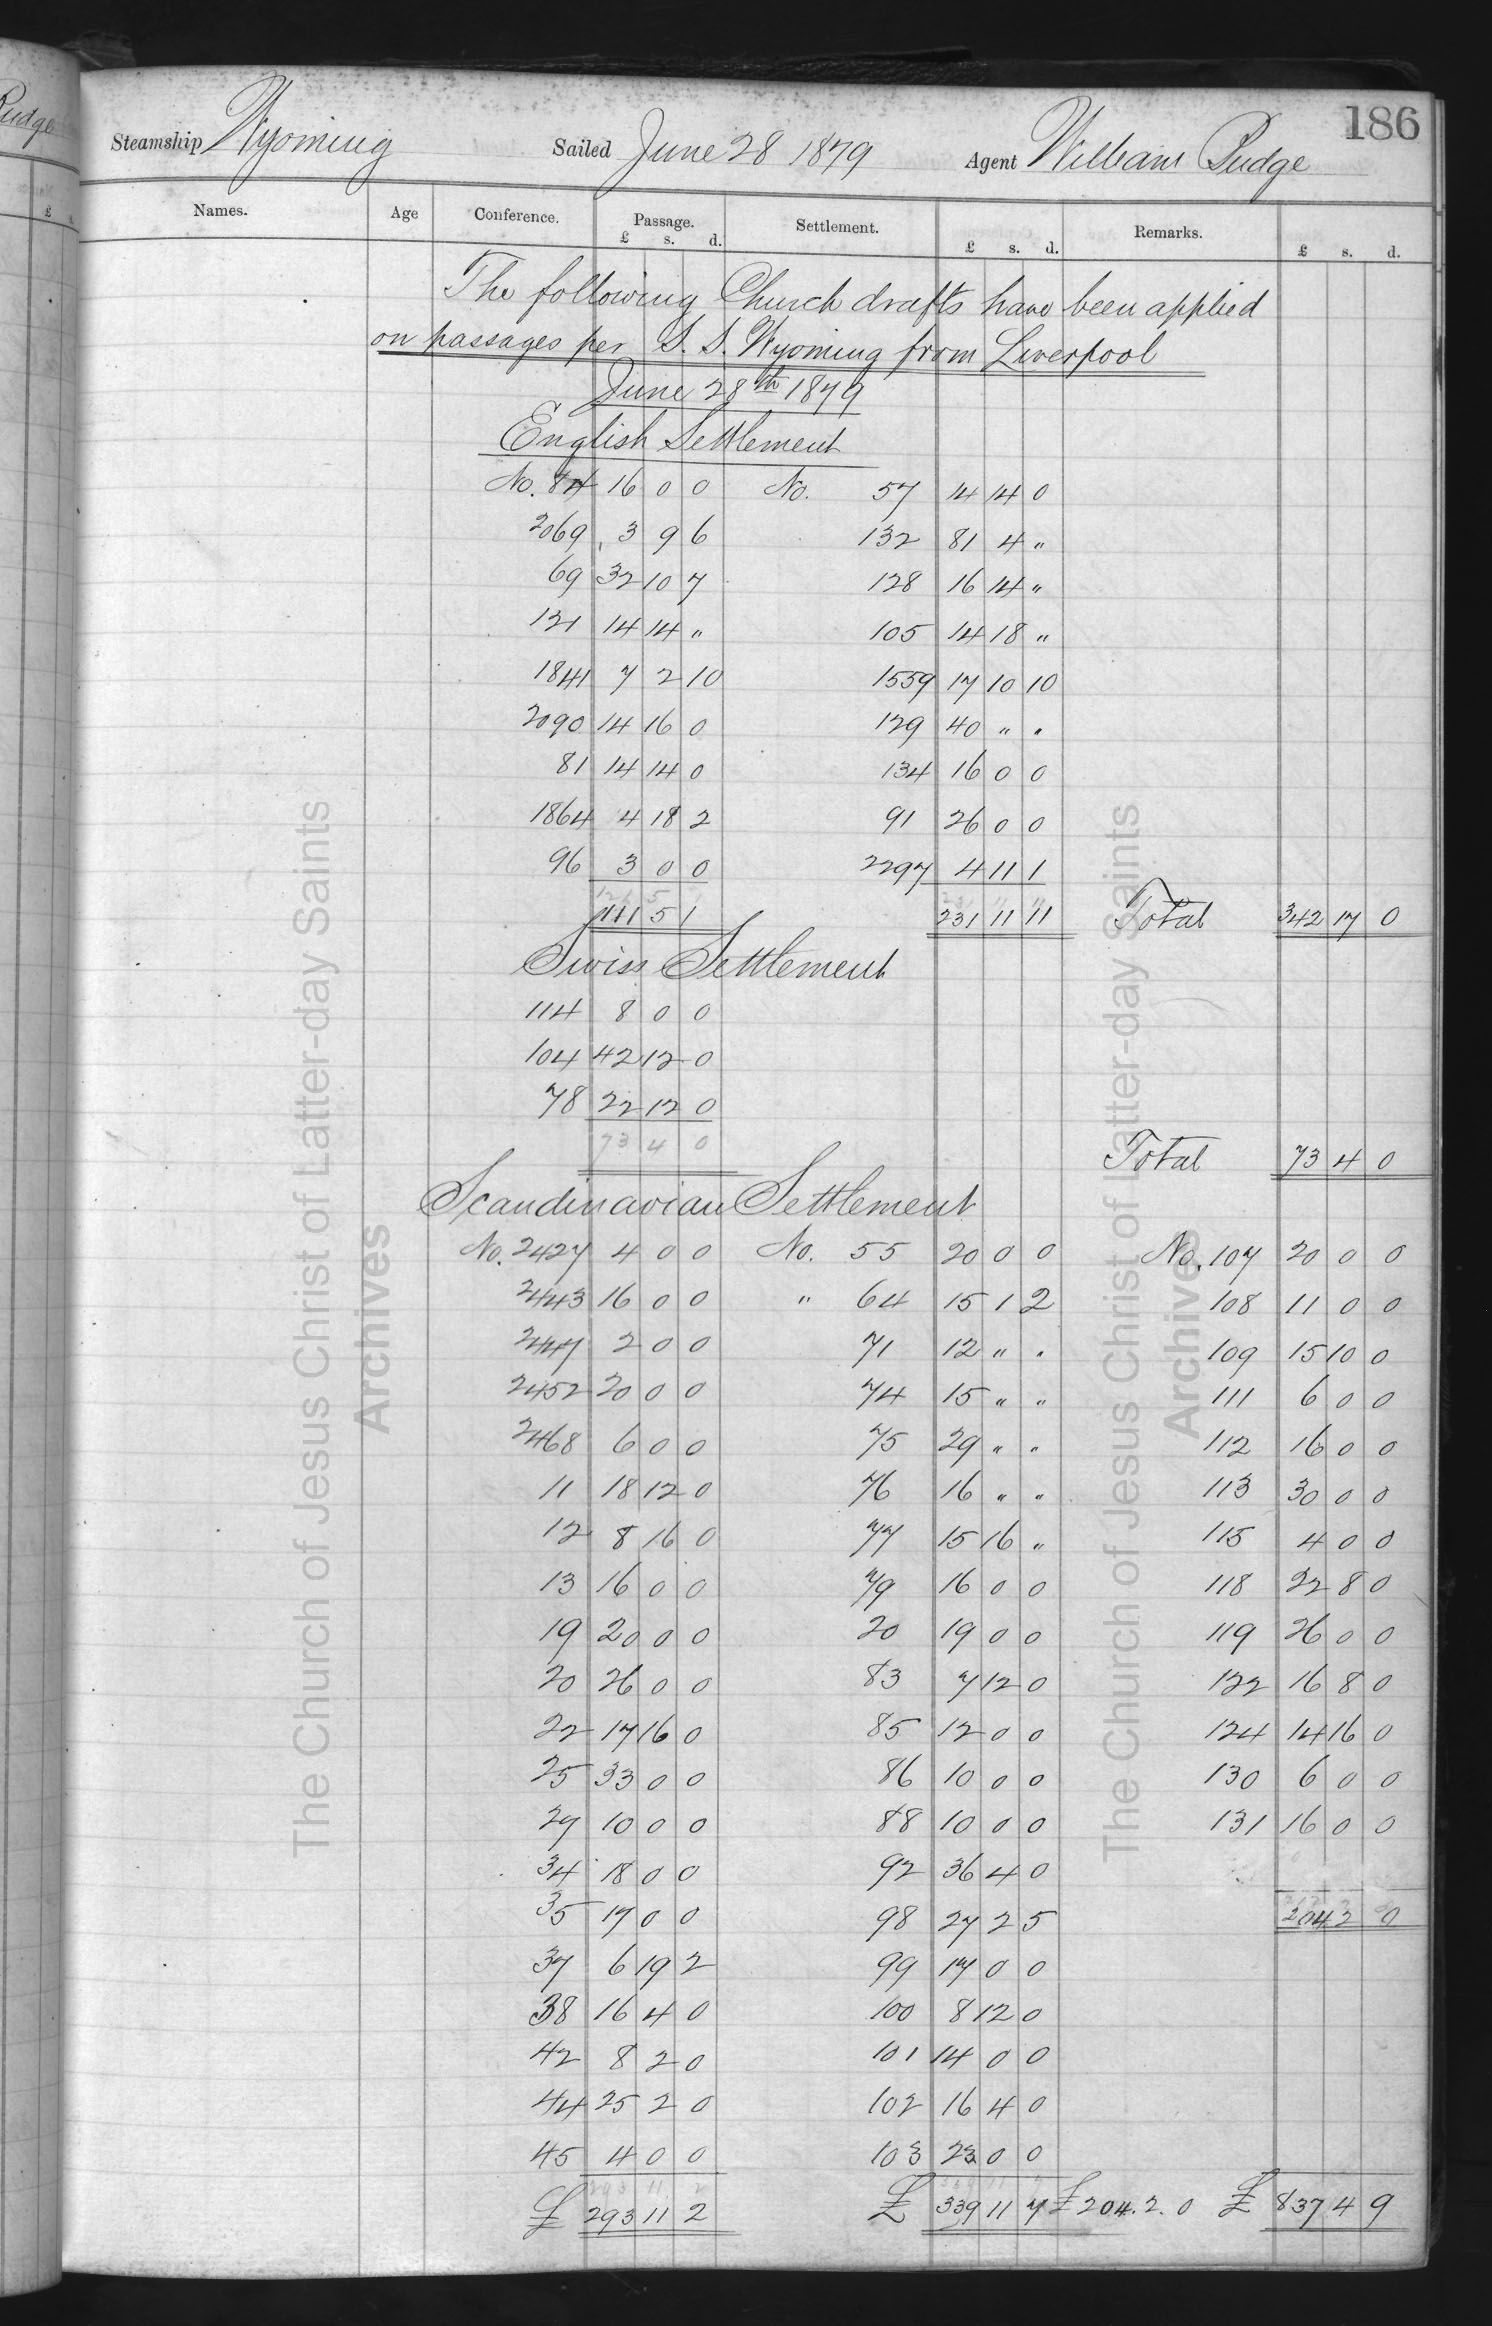 186
Steamship Wyoming Sailed June 28 1879 Agent William Budge
Names. Age Conference. Passage. Settlement. Remarks.
£ s. d. £ s. d. £ s. d.
The following Church drafts have been applied
on passages per S. S. Wyoming from Liverpool
June 28th 1879
English Settlement
No. 84 16 0 0 No. 57 14 14 0
2069 3 9 6 132 81 4 "
69 32 10 7 128 16 14 "
121 14 14 " 105 14 18 "
1841 7 2 10 1559 17 10 10
2090 14 16 0 129 40 " "
81 14 14 0 134 16 0 0
1864 4 18 2 91 26 0 0
96 3 0 0 2297 4 11 1
111 5 1 231 11 11 Total 342 17 0
Swiss Settlement
114 8 0 0
104 42 12 0
78 22 12 0
73 4 0 Total 73 4 0
Scandinavian Settlement
No. 2427 4 0 0 No. 55 20 0 0 No. 107 20 0 0
2443 16 0 0 " 64 15 1 2 108 11 0 0
2447 2 0 0 71 12 " " 109 15 10 0
2452 20 0 0 74 15 " " 111 6 0 0
2468 6 0 0 75 29 " " 112 16 0 0
11 18 12 0 76 16 " " 113 30 0 0
12 8 16 0 77 15 16 " 115 4 0 0
13 16 0 0 79 16 0 0 118 22 8 0
19 20 0 0 20 19 0 0 119 26 0 0
20 26 0 0 83 7 12 0 122 16 8 0
22 17 16 0 85 12 0 0 124 14 16 0
25 33 0 0 86 10 0 0 130 6 0 0
27 10 0 0 88 10 0 0 131 16 0 0
34 18 0 0 92 36 4 0
35 17 0 0 98 27 2 5 204 2 0
37 6 19 2 99 17 0 0
38 16 4 0 100 8 12 0
42 8 2 0 101 14 0 0
44 25 2 0 102 16 4 0
45 4 0 0 103 23 0 0
£ 293 11 2 £ 339 11 7 £ 204. 2. 0 £ 837 4 9
The Church of Jesus Christ of Latter-day Saints
Archives
The Church of Jesus Christ of Latter-day Saints
Archives